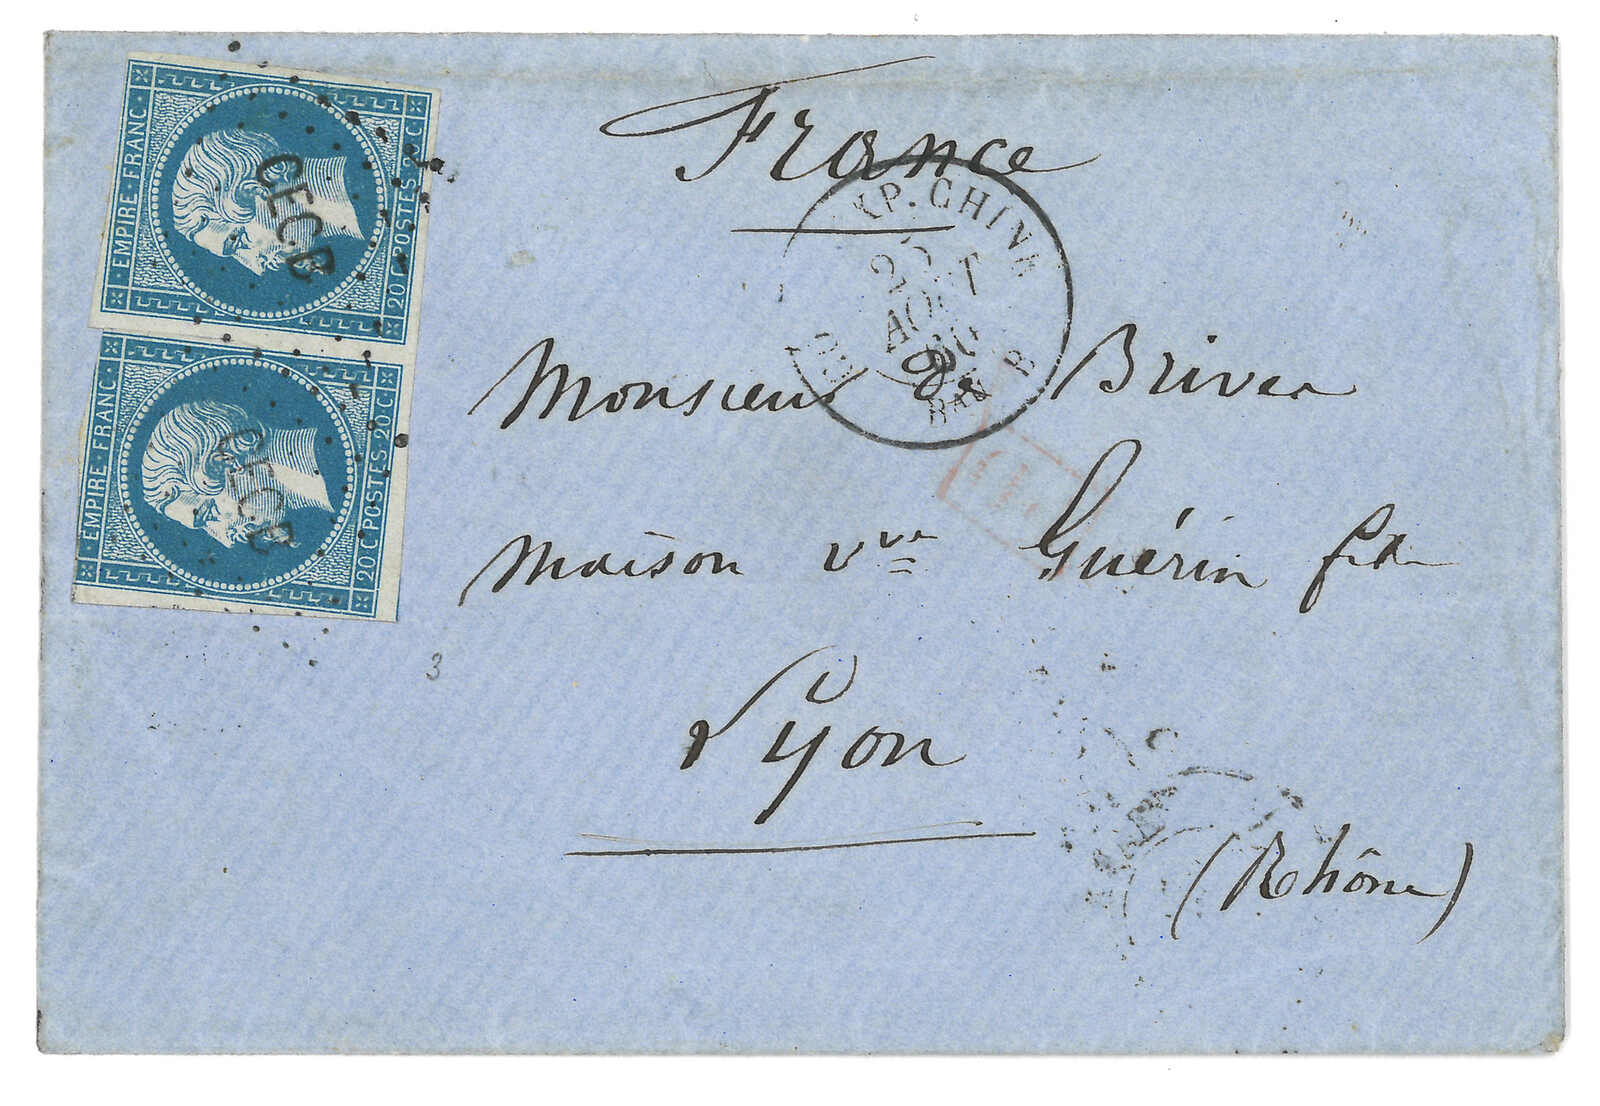 France
EMPIRE · FRANC ·
20 C POSTES 20 C
CECB
EMPIRE · FRANC ·
20 C POSTES 20 C
CECB
XP. CHINE
AOUT
60
BAU B
Monsieur de
maison vve Guérin
Lyon
(Rhône)
3